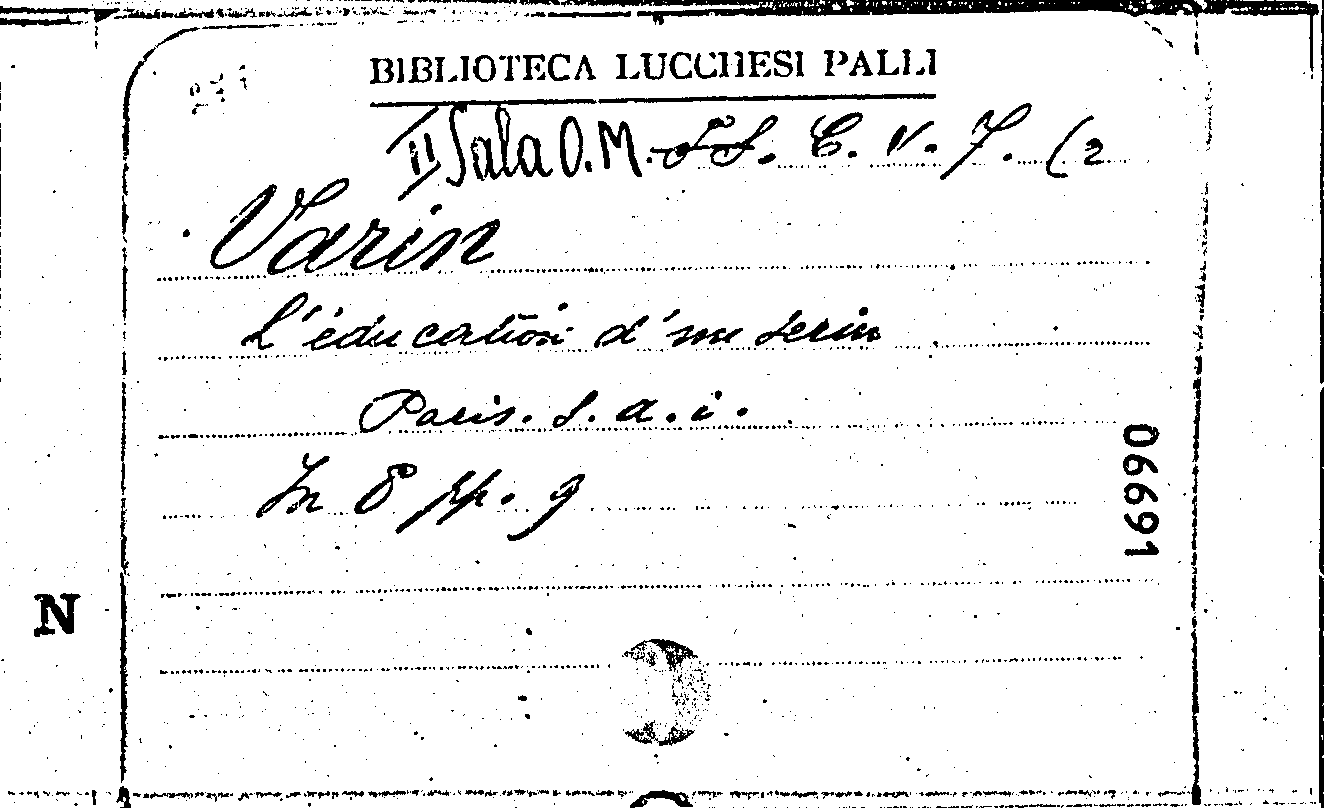 BIBLIOTECA LUCCHESI PALLI
II Sala O.M. C. V. 7. (2
Varin
L'éducation d'un serin
Paris. s. a. i.
In 8 pp. 9
06691
N